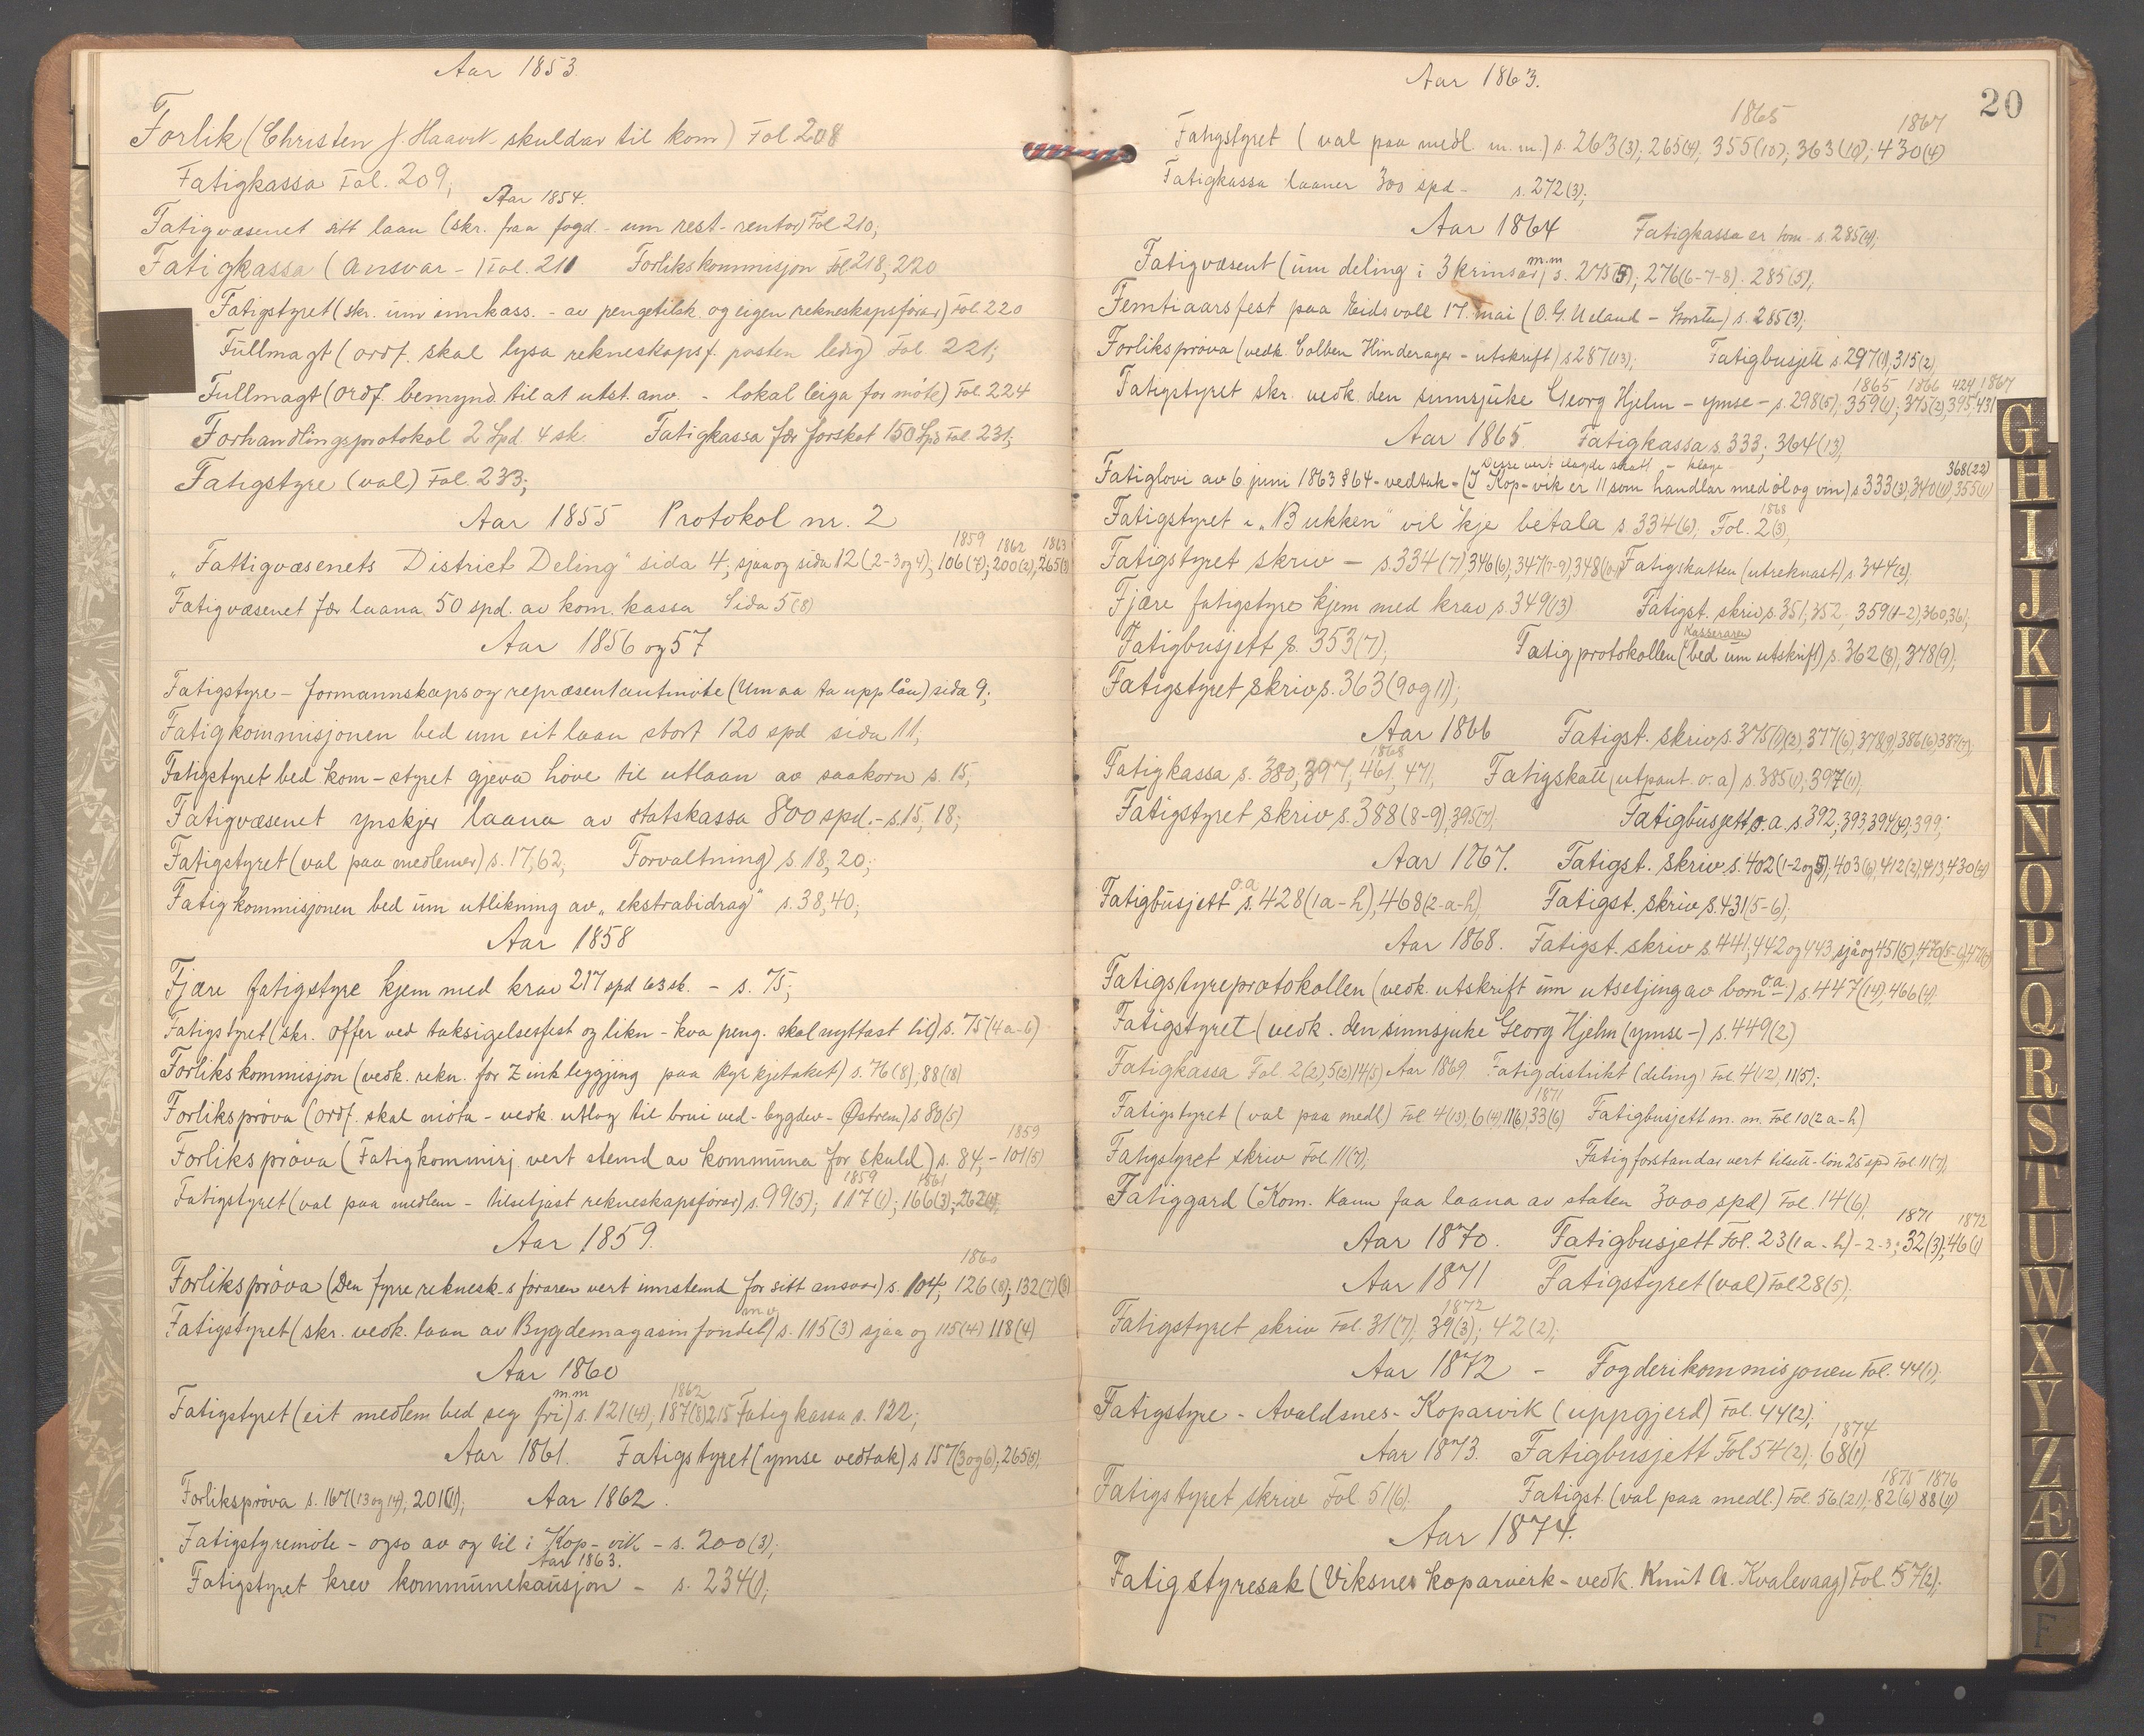 Aar 1853.
Forlik (Christen J. Haavik skuldar til kom) Fol 208
Fatigkassa Fol. 209;
Aar 1854.
Fatigvæsenet sitt laan (skr. fraa fogd. - um rest-rentor) Fol 210;
Fatigkassa (ansvar -) Fol. 211 Forlikskommisjon Fol 218, 220
Fatigstyret (skr. um innkass. - av pengetilsk. og eigen rekneskapsförar) Fol. 220
Fullmagt (ordf. skal lysa rekneskapsf. posten ledig) Fol. 221;
Fullmagt (ordf. bemynd. til at utst. anv. - lokal leiga for möte) Fol. 224
Forhandlingsprotokol 2 Spd 4 sk. Fatigkassa fær forskot 150 Spd Fol. 231;
Fatigstyre (val) Fol. 233;
Aar 1855 Protokol nr. 2
1859 1862 1863
"Fattigvæsenets District Deling" sida 4; sjaa og sida 12 (2-3 og 4); 106(7); 200(2); 265(3)
Fatigvæsenet fær laana 50 spd. av kom. kassa Sida 5(8)
Aar 1856 og 57
Fatigstyre - formannskaps og repræsentantmöte (Um aa ta upp lån) sida 9;
Fatigkommisjonen bed um eit laan stort 120 spd sida 11;
Fatigstyret bed kom-styret gjeva höve til utlaan av saakorn s. 15;
Fatigvæsenet ynskjer laana av statskassa 800 spd. - s. 15, 18;
Fatigstyret (val paa medlemer) s. 17, 62; Forvaltning s. 18, 20;
Fatigkommisjonen bed um utlikning av "ekstrabidrag" s. 38, 40;
Aar 1858
Fjære fatigstyre kjem med krav 217 spd 63 sk. - s. 75;
Fatigstyret (skr. offer ved taksigelsesfest og likn - kva peng. skal nyttast til) s. 75 (4a-6)
Forlikskommisjon (vedk. rekn. for Zinkleggjing paa kyrkjetaket) s. 76(8), 88(18)
Forlikspröva (ordf. skal möta - vedk. utlog til brui ved - bygdev - Östrem) s 80(5)
1859
Forliksprova (Fatigkommisj. vert stemd av kommuna for skuld) s. 84; - 101(5)
1859 1861
Fatigstyret (val paa medlem - tilsetjast rekneskapsförar) s. 99(5); 117(1); 166(3); 262(4);
Aar 1859.
1860
Forliksprova (Den fyrre reknesk-s föraren vert innstemd for sitt ansvar) s. 104; 126(8); 132(7)(8)
m.v.
Fatigstyret (skr. vedk. laan av Bygdemagasinfondet) s. 115(3) sjaa og 115(4) 118(4)
Aar 1860
m.m 1862
Fatigstyret (eit medlem bed seg fri) s. 121(4); 187(8) 215 Fatigkassa s. 122;
Aar 1861. Fatigstyret (ymse vedtak) s 157(3 og 6); 265(5);
Forliksprova s. 167(13 og 14), 201(11); Aar 1862.
Fatigstyremöte - ogso av og til i Kop-vik - s. 200(3);
Aar 1863.
Fatigstyret krev kommunekausjon - s. 234(1);
Aar 1863.
20
1865 1867
Fatigstyret (val paa medl m.m.) s. 263(3); 265(4), 355(10); 363(10); 430(4)
Fatigkassa laaner 300 spd - s. 272(3);
Aar 1864 Fatigkassa er tom - s. 285(4);
m.m
Fatigvæsent (um deling i 3 krinsar) s. 275(5); 276(6-7-8). 285(5);
Femtiaarsfest paa Eidsvoll 17. mai (O. G. Ueland - Storten) s. 285(3);
Forliksprova (vedk. Colben Hinderager - utskrift) s 287(13); Fatigbusjett s 297(1), 315(2)
1865 1866 424, 1867
Fatigstyret skr. vedk. den sinnsjuke Georg Hjelm - ymse - s. 298(5), 359(1); 375(2), 395, 431
Aar 1865 Fatigkassa s. 333; 364(13),
Disse vert ilagde skatt - klage 368(22)
Fatiglovi av 6 juni 1863 & 64 - vedtak - (I Kop-vik er 11 som handlar med öl og vin) s 333(3), 340(1), 355(1)
1868
Fatigstyret i "Bukken" vil kje betala s 334(6), Fol. 2(3),
Fatigstyret skriv - s. 334(7), 346(6), 347(7-9), 348(10) Fatigskatten (utreknast) s. 344(2);
Fjære fatigstyre kjem med krav s. 349(13) Fatigst. skriv s. 351, 352, 359(1-2), 360, 361;
Kasseraren
Fatigbusjett s. 353(7), Fatigprotokollen (bed um utskrift) s. 362(8), 378(9),
Fatigstyret skriv s. 363(9 og 11);
Aar 1866 Fatigst. skriv s. 375(1)(2), 377(6), 378(9), 386(6), 387(7),
1868
Fatigkassa s. 380, 397, 461, 471, Fatigskatt (utpant. o.a) s. 385(1), 397(11),
Fatigstyret skriv s. 388(8-9), 395(7), Fatigbusjett o.a. s. 392, 393, 394(9), 399,
Aar 1867. Fatigst. skriv s. 402(1-2 og 5), 403(6), 412(2), 413, 430(4)
o.a
Fatigbusjett s. 428(1a-h), 468(2-a-h), Fatigst. skriv s. 431(5-6);
Aar 1868. Fatigst. skriv s. 441, 442 og 443, sjå og 451(5), 470(5-6), 471
o.a.
Fatigstyreprotokollen (vedk. utskrift um utsetjing av born -) s. 447(14), 466(4).
Fatigstyret (vedk. den sinnsjuke Georg Hjelm (ymse -) s. 449(2)
Fatigkassa Fol. 2(2), 5(2) 14(5) Aar 1869 Fatigdistrikt (deling) Fol. 4(12), 11(5);
1871
Fatigstyret (val paa medl) Fol 4(13), 6(4), 11(6), 33(6) Fatigbusjett m. m. Fol 10(2a-h)
Fatigstyret skriv Fol. 11(7); Fatigforstandar vert tilsett - lön 25 spd Fol. 11(7),
Fatiggard (Kom. kann faa laana av staten 3000 spd) Fol. 14(6),
1871 1872
Aar 1870. Fatigbusjett Fol. 23(1a-h) - 2-3; 32(3); 46(1)
Aar 1871 Fatigstyret (val) Fol 28(5);
1872
Fatigstyret skriv Fol. 31(7), 39(3); 42(2);
Aar 1872 - Fogderikommisjonen Fol. 44(1);
Fatigstyre - Avaldsnes - Koparvik (uppgjerd) Fol. 44(2);
1874
Aar 1873. Fatigbusjett Fol 54(2); 68(1)
1875 1876
Fatigstyret skriv Fol. 51(6). Fatigst. (val paa medl.) Fol. 56(21); 82(6) 88(11)
Aar 1874.
Fatigstyresak (Viksnes koparverk - vedk. Knut A. Kvalevaag) Fol. 57(2);
G
H
I
J
K
L
M
N
O
P
Q
R
S
T
U
W
X
Y
Z
Æ
Ø
F